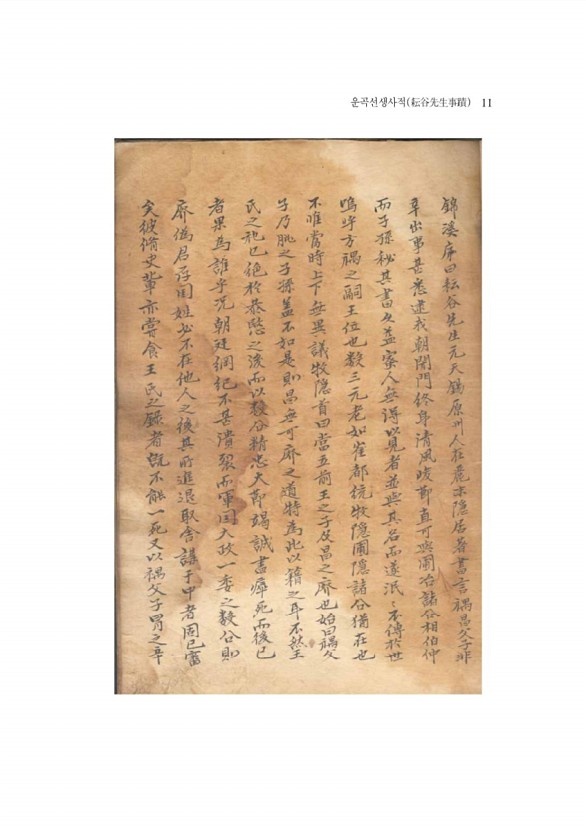 운곡선생사적(耘谷先生事蹟) 11
錦溪屛曰耘谷先生元天錫原川人在麗末隱居著書言禑昌父子非
辛出事甚悉逮我朝閉門終身清風峻節直可與圃冶諸公相伯仲
而子孫秘其書久益密人無得以見者並與其名而遂泯〻不傳於世
嗚乎方禑之嗣王位也數三元老如崔都統牧隱圃隱諸公猶在也
不唯當時上下無異議牧隱首曰當立前王之子及昌之廢也始曰禑父
子乃旽之子孫盖不如是則昌無可廢之道特爲此以籍之耳不然王
氏之祀已絶於恭愍之後而以數公精忠大節竭誠書瘁死而後已
者果爲誰乎況朝廷綱紀不甚潰裂而軍囯大政一委之數公則
廢僞君存囯姓必不在他人之後其所進退取舍講于中者固已審
矣彼脩史輩亦嘗食王氏之祿者旣不能一死又以禑父子冐之辛